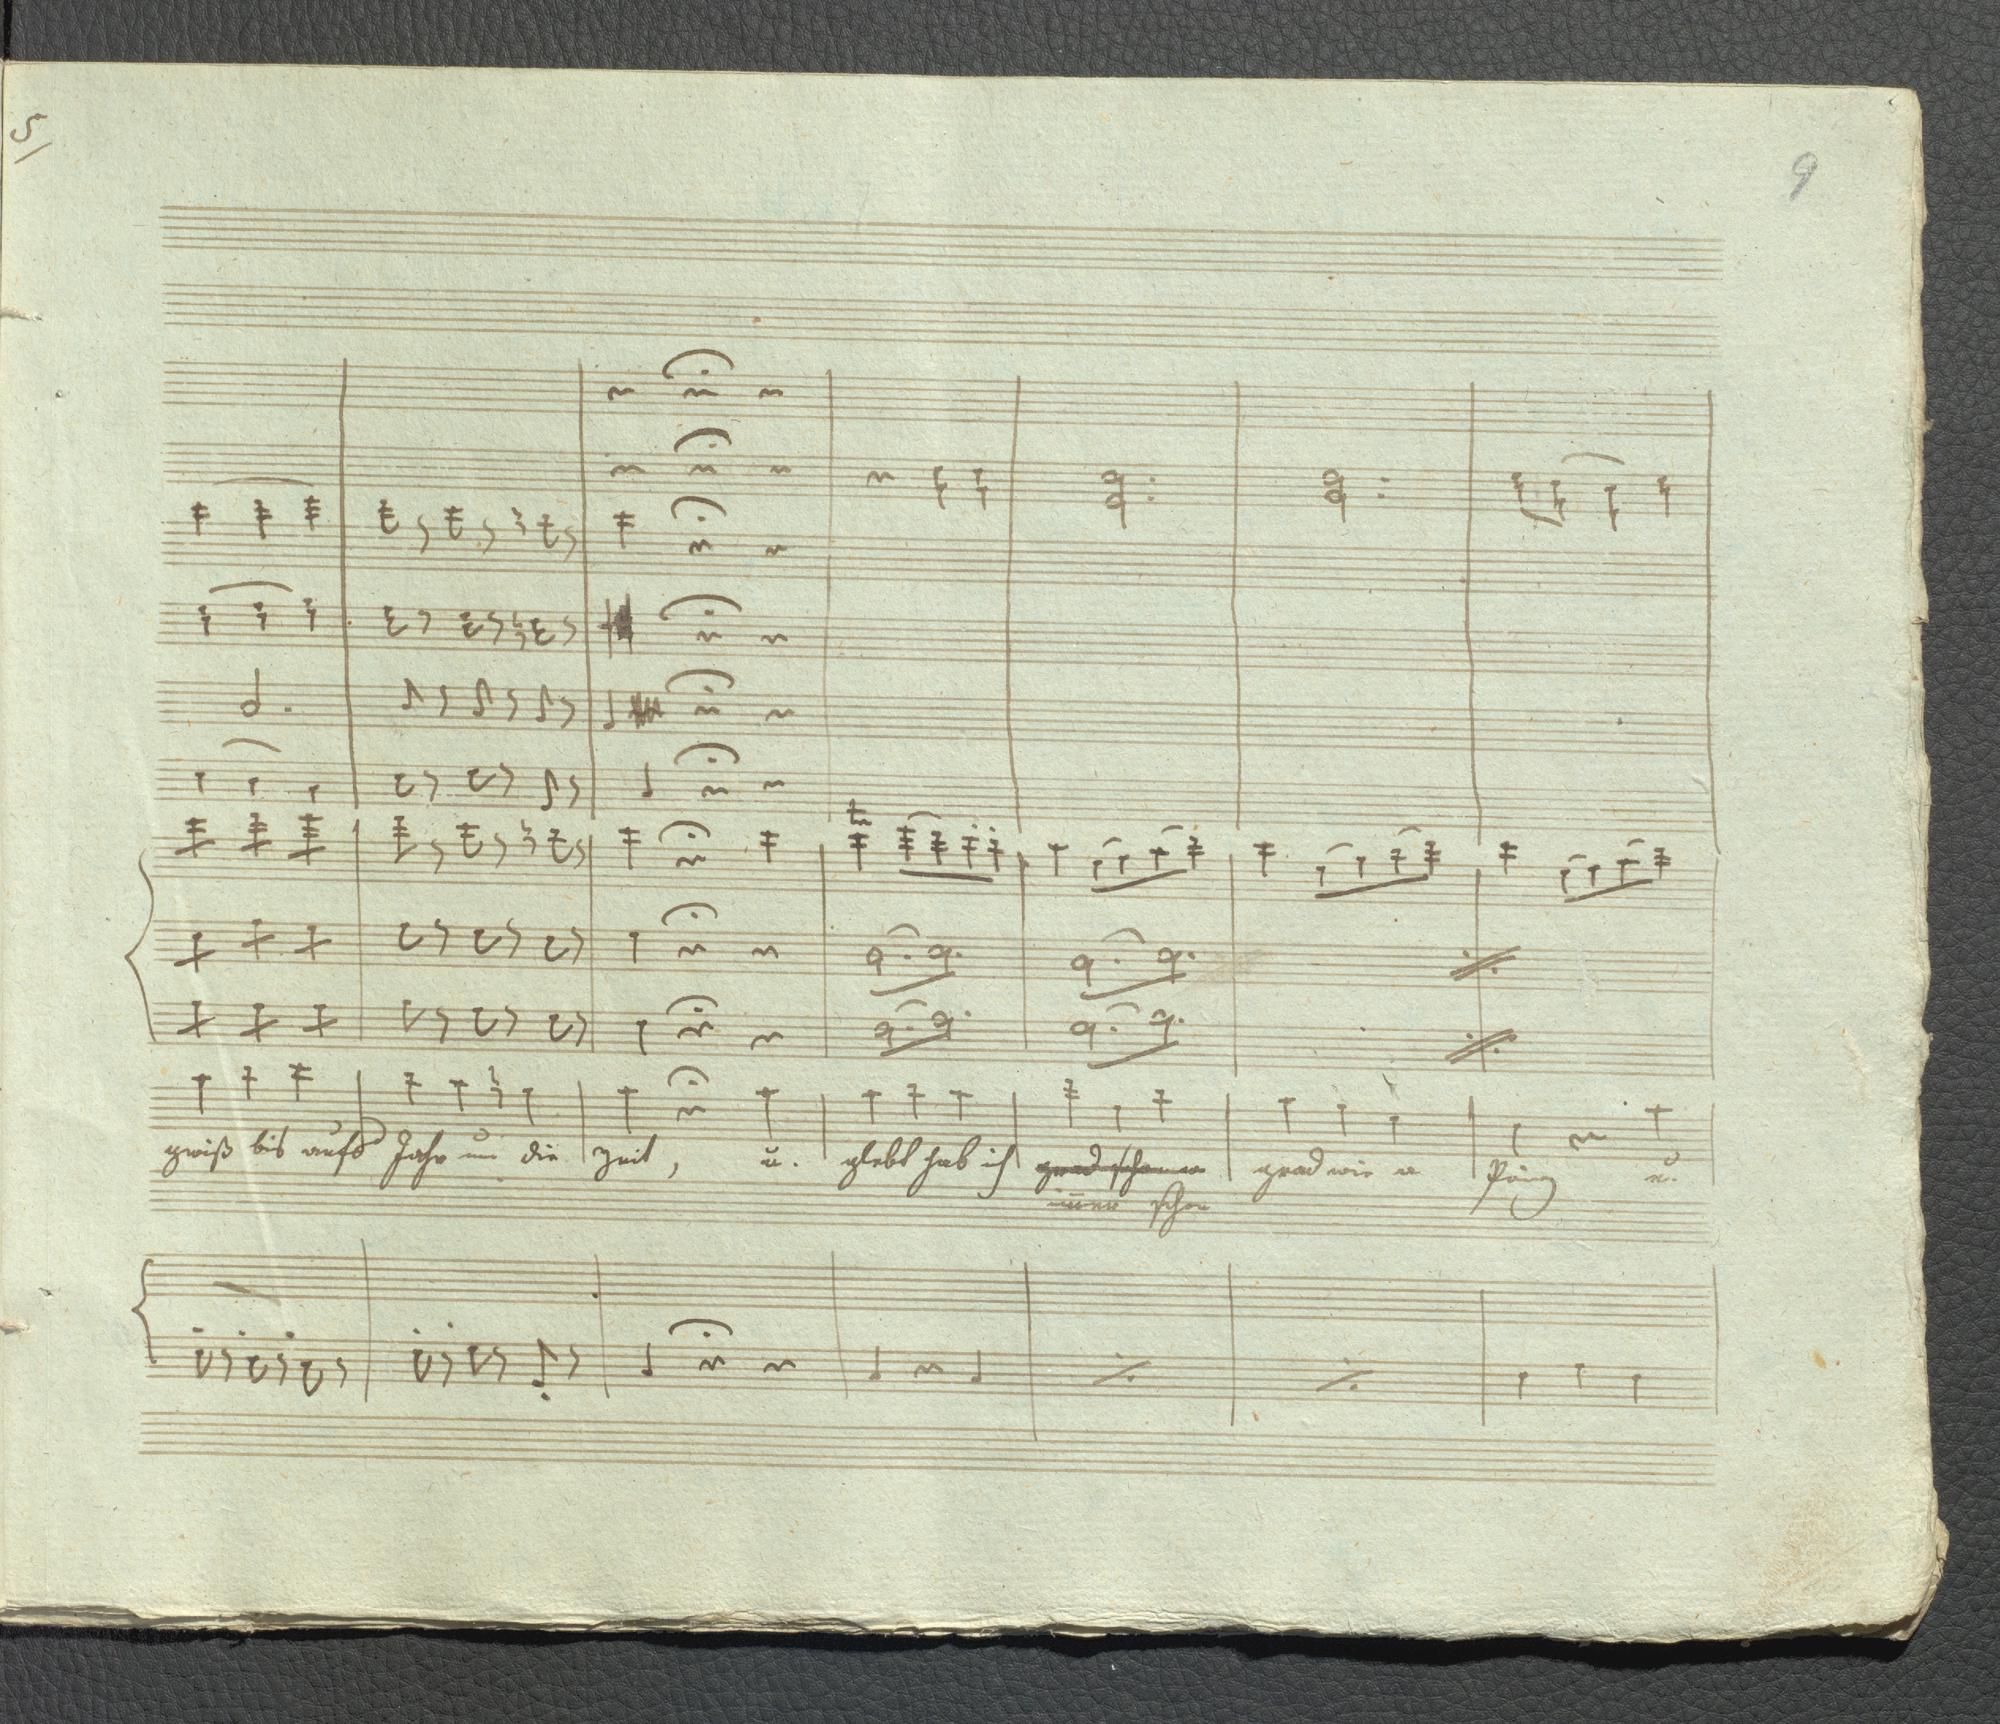 5/
9
tr
gwiß bis aufs Jahr um die Zeit, u. glebt hab ich grad schon a grad wie a König u.
immer schon